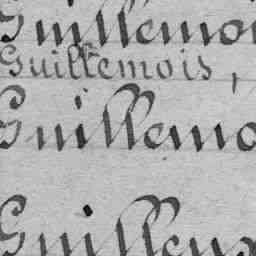 Guillemoi
Guillemois,
Guillemo
Guillem